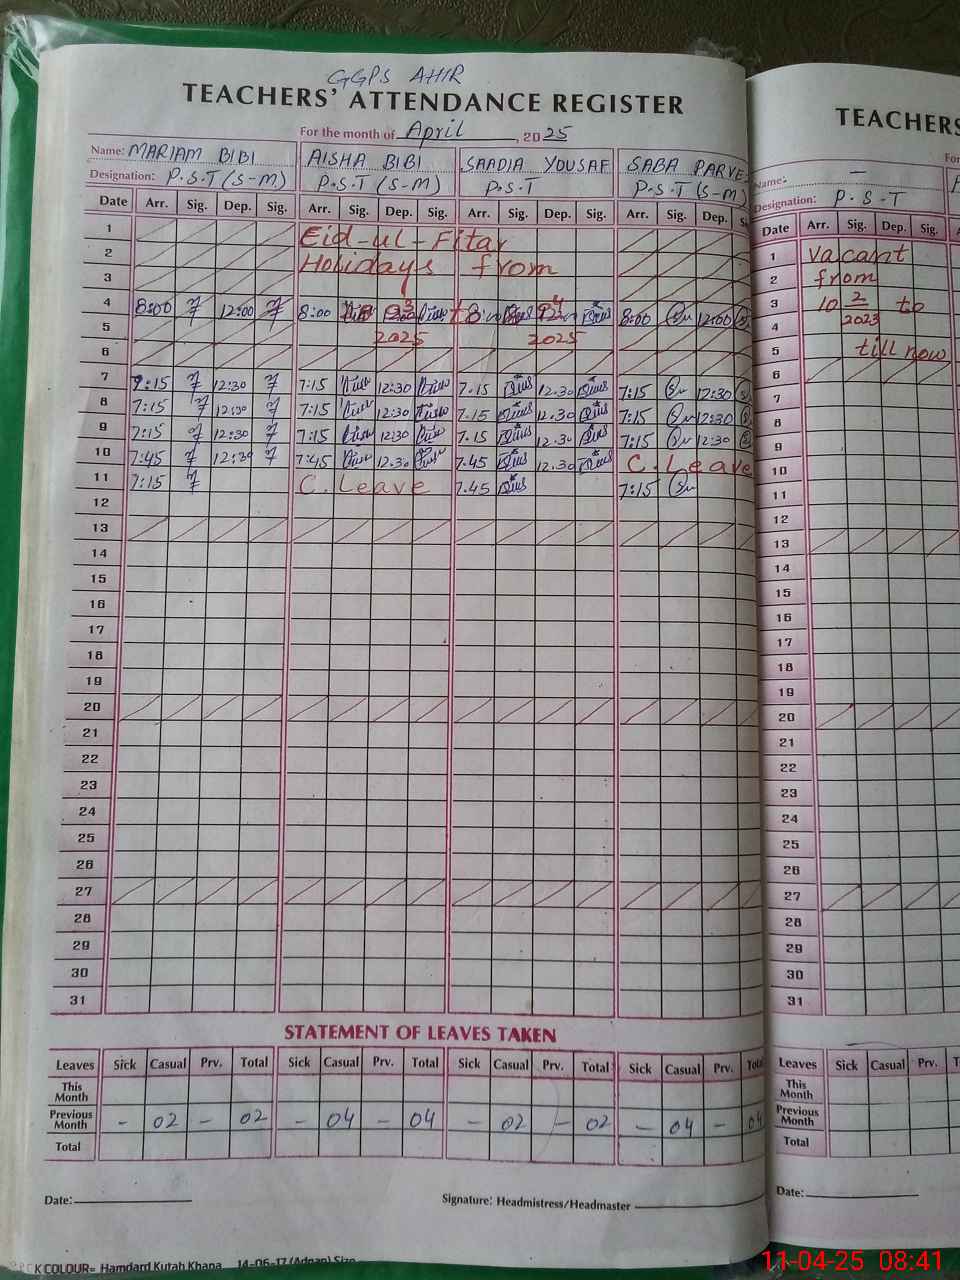 GGPS AHIR
TEACHERS' ATTENDANCE REGISTER
For the month of April, 2025
Name: MARIAM BIBI AISHA BIBI SAADIA YOUSAF SABA PARVE
Designation: P.S.T (S-M) P.S.T (S-M) P.S.T P.S.T (S-M)
Date Arr. Sig. Dep. Sig. Arr. Sig. Dep. Sig. Arr. Sig. Dep. Sig. Arr. Sig. Dep. S
1 Eid-ul-Fitar
2 Holidays from
3
4 8:00 12:00 8:00 8:00 12:00
5 2025 2025
6
7 7:15 12:30 7:15 12:30 7.15 12.30 7:15 12:30
8 7:15 12:30 7:15 12:30 7.15 12.30 7:15 12:30
9 7:15 12:30 7:15 12:30 7.15 12.30 7:15 12:30
10 7:45 12:30 7:45 12.30 7.45 12.30 C. Leave
11 7:15 C. Leave 7.45 7:15
12
13
14
15
16
17
18
19
20
21
22
23
24
25
26
27
28
29
30
31
STATEMENT OF LEAVES TAKEN
Leaves Sick Casual Prv. Total Sick Casual Prv. Total Sick Casual Prv. Total Sick Casual Prv. Total
This Month
Previous Month - 02 - 02 - 04 - 04 - 02 - 02 - 04 - 04
Total
Date:
Signature: Headmistress/Headmaster
CK COLOUR= Hamdard Kutab Khana 14-06-17 (Adnan) Size
TEACHERS
For
Name: -
Designation: P.S.T
Date Arr. Sig. Dep. Sig.
1 Vacant
2 from
3 10 2/2023 to
4
5 till now
6
7
8
9
10
11
12
13
14
15
16
17
18
19
20
21
22
23
24
25
26
27
28
29
30
31
Leaves Sick Casual Prv. T
This Month
Previous Month
Total
Date:
11-04-25 08:41